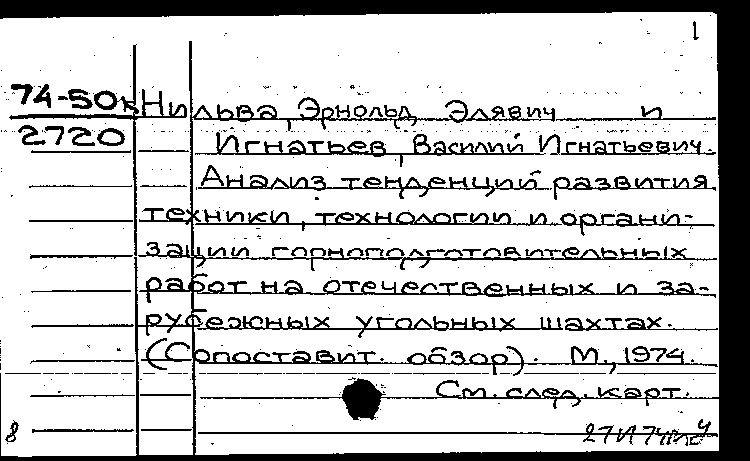 1
74-50к Нильва, Эрнольд Элявич и
2720 Игнатьев, Василий Игнатьевич.
Анализ тенденций развития
техники, технологии и органи-
зации горноподготовительных
работ на отечественных и за-
рубежных угольных шахтах.
(Сопоставит. обзор). М., 1974.
См. след. карт.
8